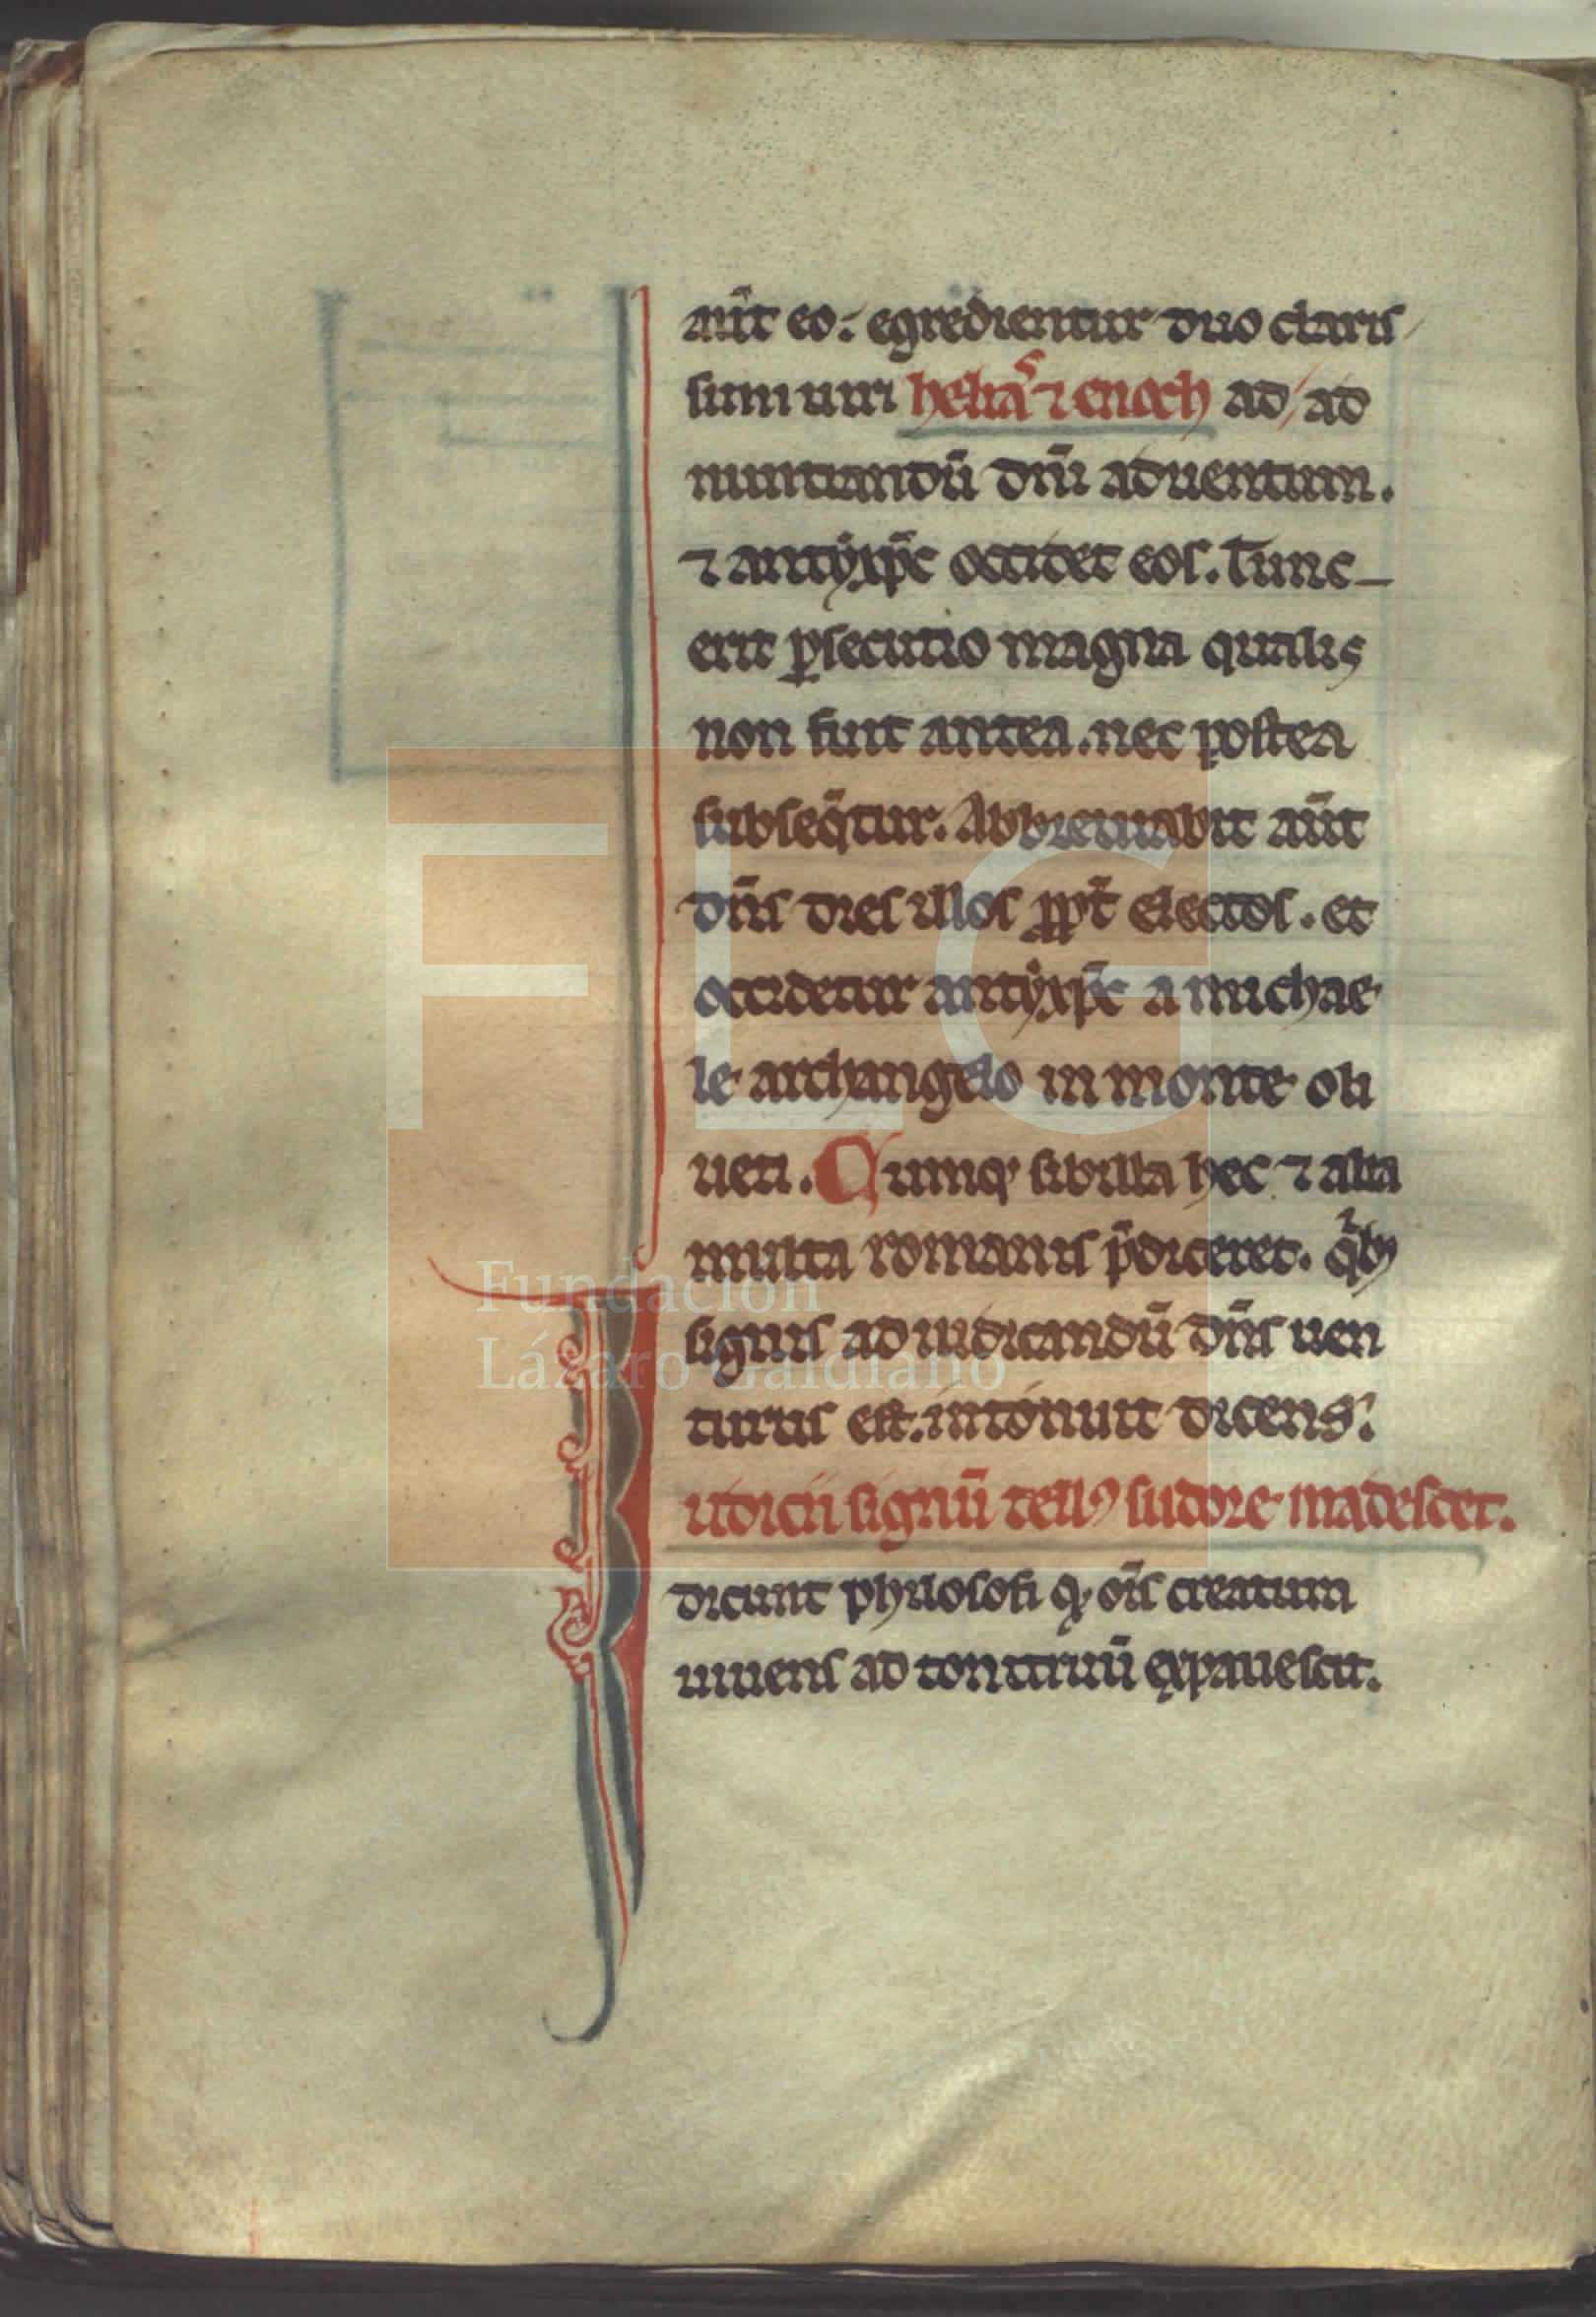 aūt eo. egredientur duo claris/
simi uiri heliaˢ ⁊ enoch ad/ad
nuntiandū dn̄i aduentum.
⁊ antyxp̄c occidet eos. Tunc
erit ꝑsecutio magna qualis
non fuit antea. nec postea
subseq̄tur. Abbreuiabit aūt
dn̄s dies illos ꝓpt̄ electos. et
occidetur antyxp̄c a michae
le archangelo in monte oli
ueti. Cumq; sibilla hec ⁊ alia
multa romanis p̄diceret. qⁱbꝫ
signis ad iudicandū dn̄s uen
turus est. intonuit dicens.
Iudicii signū tellꝰ sudore madescet.
dicunt phylosofi qꝫ om̄s creatura
uiuens ad tonitruū expauescit.
FLG
Fundación
Lázaro Galdiano